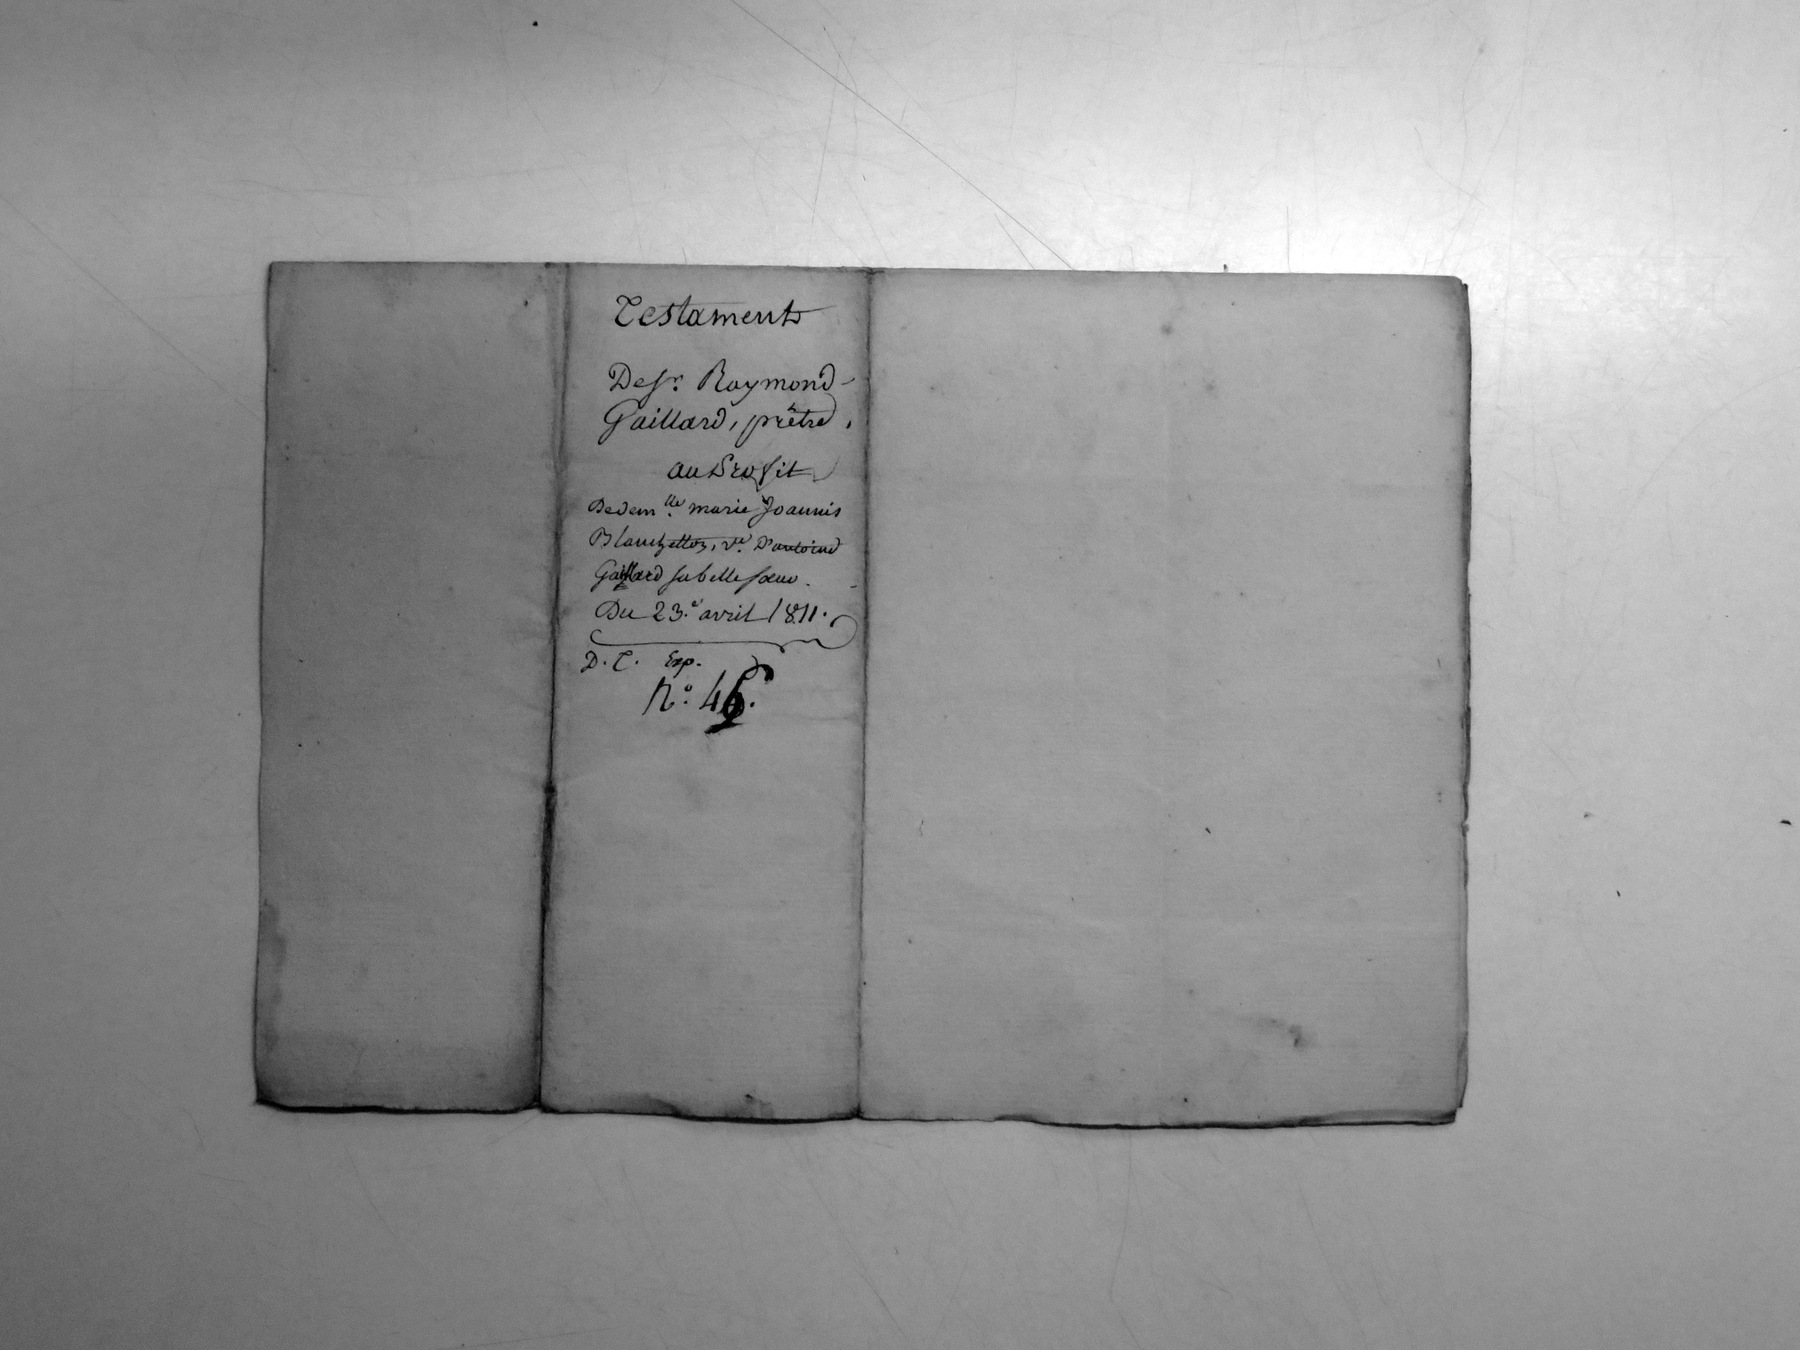 Testament
De sr. Raymond
Gaillard, prêtre,
au Profit
De dem.lle marie Joannis
Blanchetton, ve. D'antoine
Gaillard sa belle sœur.
Du 23.e avril 1811.
D. T. Exp.
N.o 46.